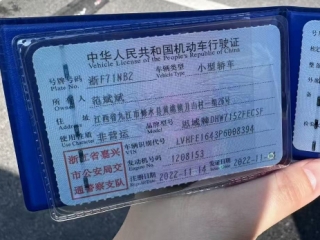 中华人民共和国机动车行驶证
Vehicle License of the People's Republic of China
号牌号码 浙F71NBZ 车辆类型 小型轿车
Plate No. Vehicle Type
所有人 范斌斌
Owner
住址 江西省九江市修水县黄港镇月山村一组
Address
使用性质 非营运 品牌型号 思域牌DHW7152FFCSF
Use Character Model
浙江省嘉兴 车辆识别代号 LVHFE1643P6008394
VIN
市公安局交 发动机号码 1208153
Engine No.
通警察支队 注册日期 2022-11-14 发证日期 2022-11-
Register Date Issue Date